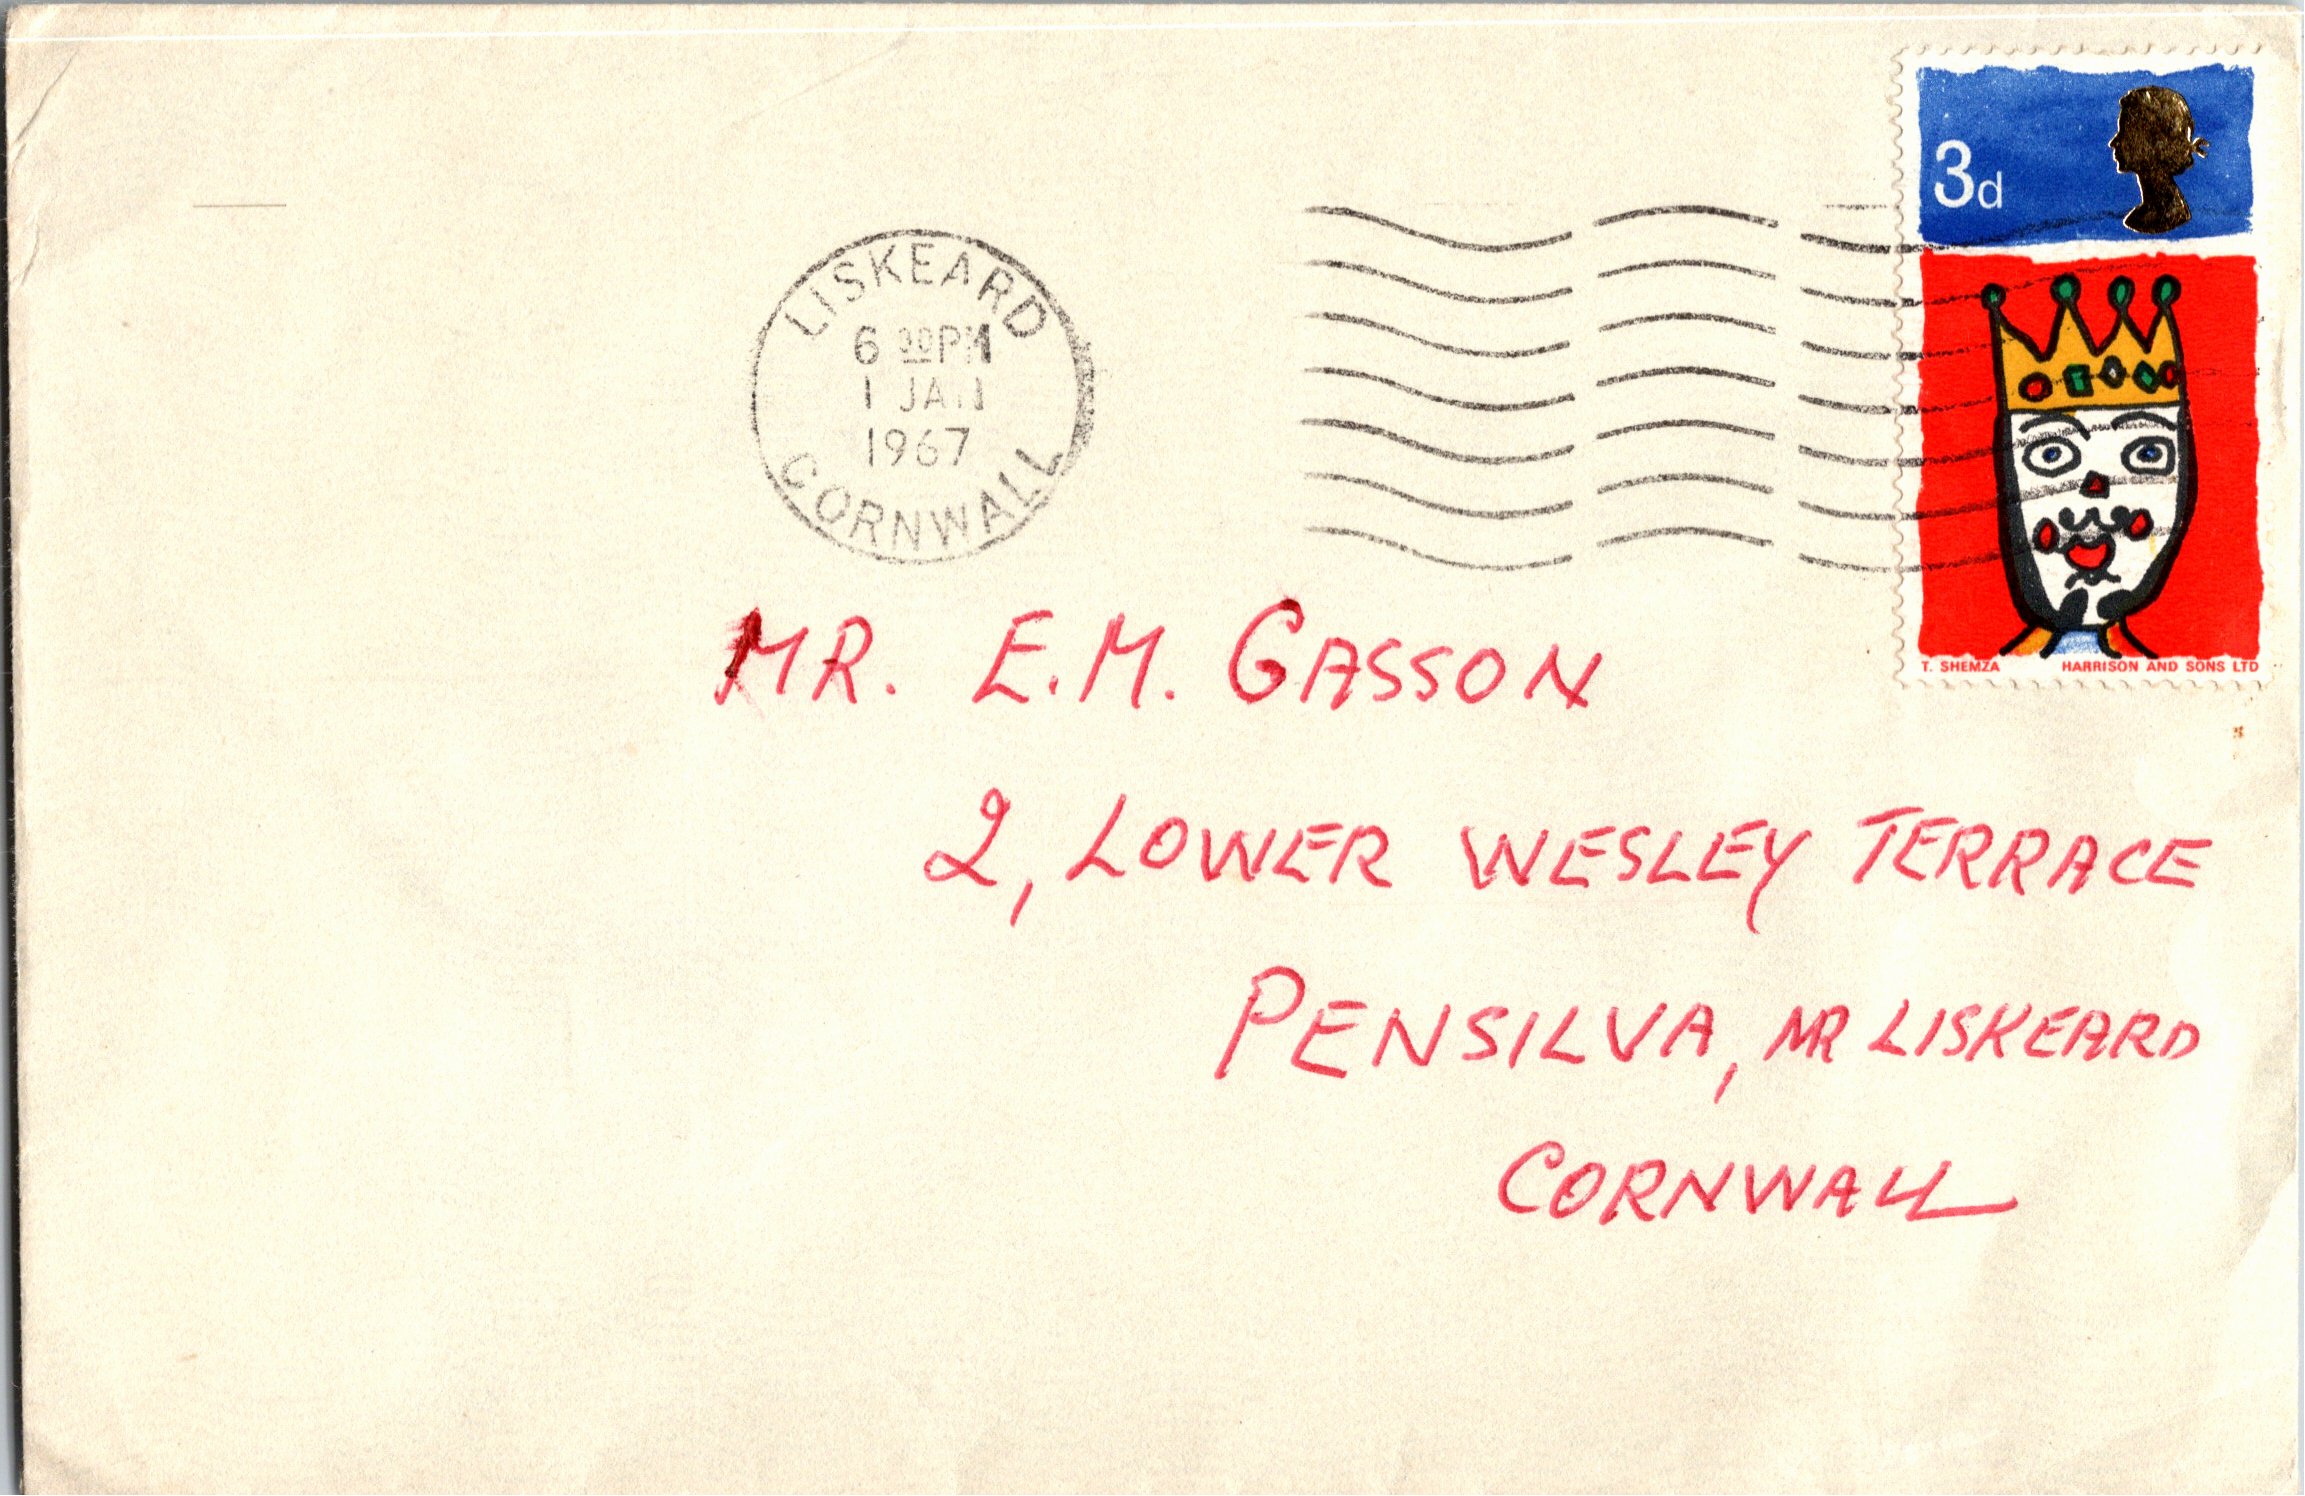 3d
LISKEARD
6 00PM
1 JAN
1967
CORNWALL
T. SHEMZA HARRISON AND SONS LTD
MR. E.M. GASSON
2, LOWER WESLEY TERRACE
PENSILVA, NR LISKEARD
CORNWALL